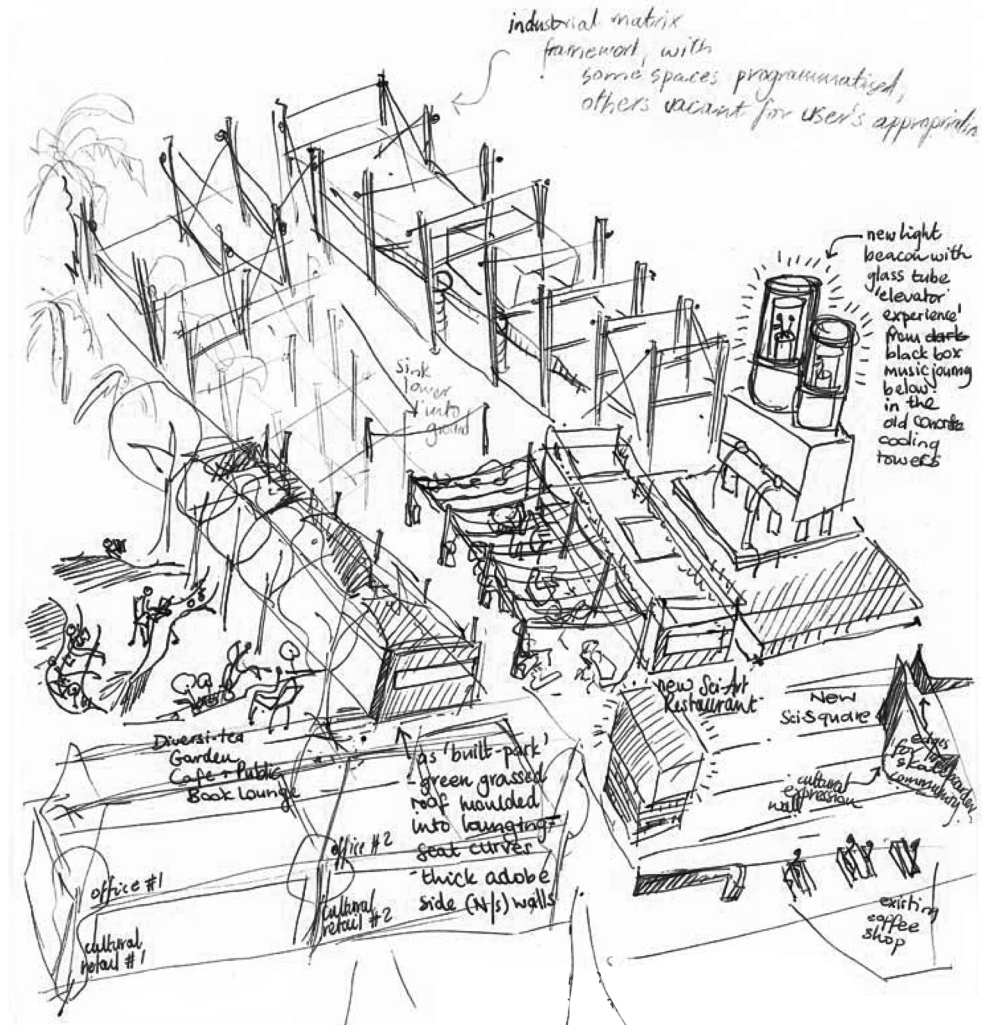 industrial matrix
framework, with
some spaces programmatised,
others vacant for user's
new light
beacon with
glass tube
'elevator
experience'
from dark
black box
music journey
below
in the
old concrete
cooling
towers
sink
lower
into
ground
new Sci-Art
Restaurant
New
Sci-Square
edges
for
skateboarder
community
cultural
expression
wall
Diversi-tea
Garden
Cafe + Public
Book Lounge
as 'built-park'
- green grassed
roof moulded
into lounging
seat curves
- thick adobe
side (N/S) walls
office #1
office #2
cultural
retail #1
cultural
retail #2
existing
coffee
shop